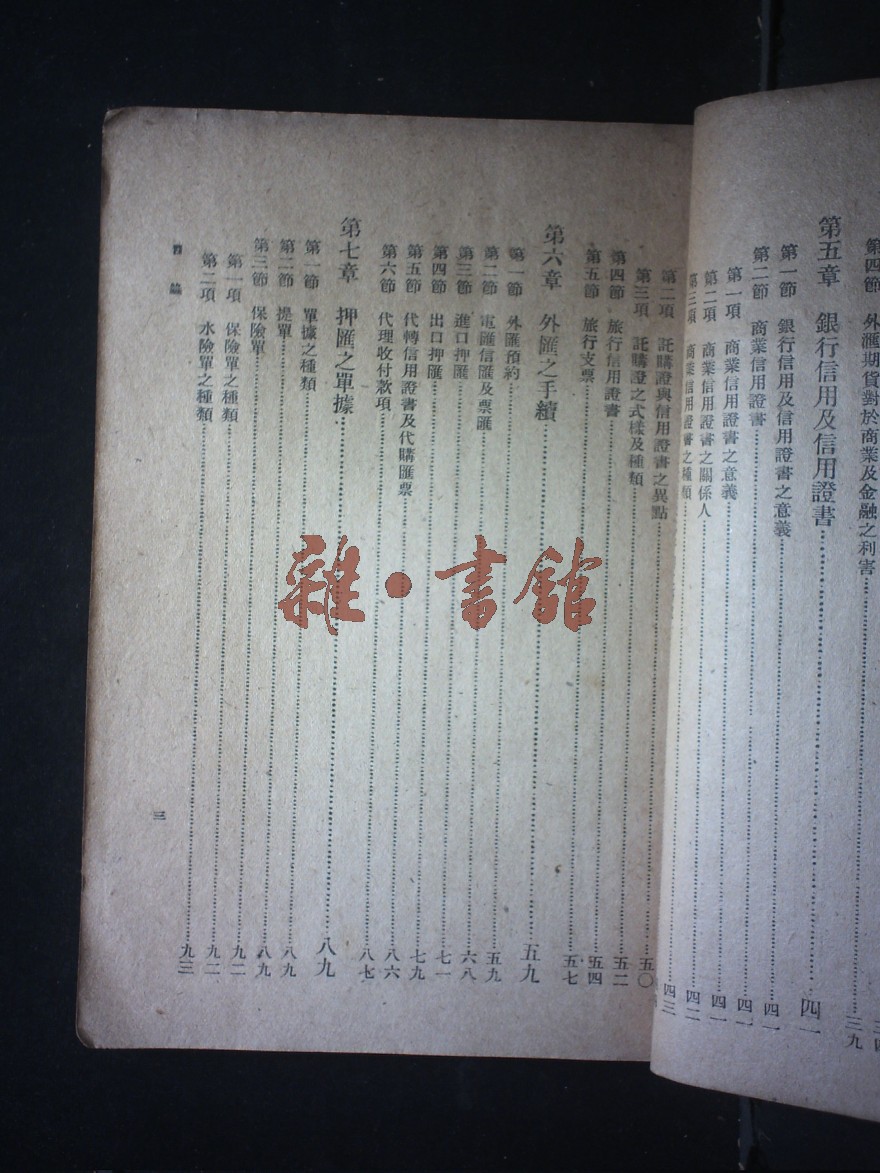 第四節 外滙期貨對於商業及金融之利害…三九
第五章 銀行信用及信用證書…四一
第一節 銀行信用及信用證書之意義…四一
第二節 商業信用證書…四一
第一項 商業信用證書之意義…四一
第二項 商業信用證書之關係人…四二
第三項 商業信用證書之種類…四三
第二項 託購證與信用證書之異點…五〇
第三項 託購證之式樣及種類
第四節 旅行信用證書…五二
第五節 旅行支票…五四
五七
第六章 外匯之手續…五九
第一節 外匯預約…五九
第二節 電匯信匯及票匯
第三節 進口押匯…六八
第四節 出口押匯…七一
第五節 代轉信用證書及代購匯票…七九
第六節 代理收付款項…八六
八七
第七章 押匯之單據…八九
第一節 單據之種類…八九
第二節 提單…八九
第三節 保險單…九二
第一項 保險單之種類…九二
第二項 水險單之種類…九三
目錄
三
雜·書館